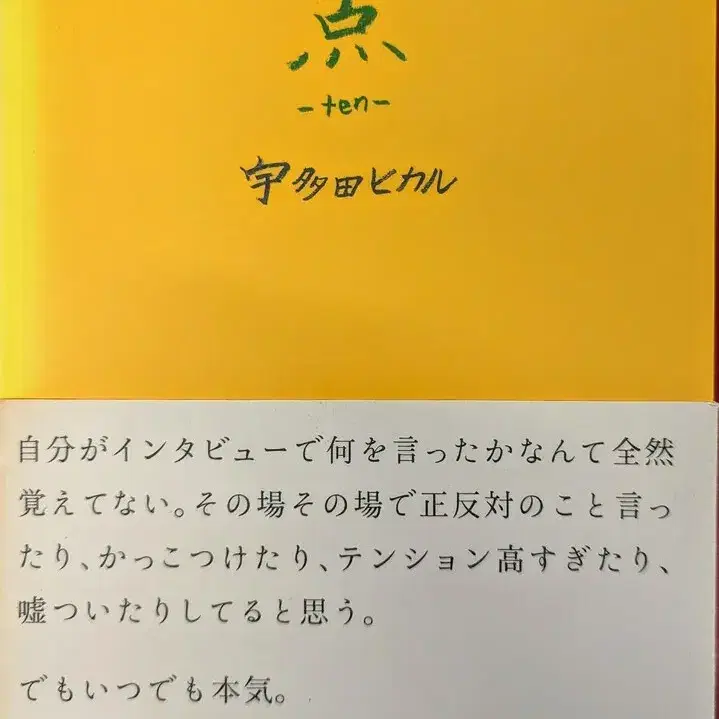 点
-ten-
宇多田ヒカル
自分がインタビューで何を言ったかなんて全然
覚えてない。その場その場で正反対のこと言っ
たり、かっこつけたり、テンション高すぎたり、
嘘ついたりしてると思う。
でもいつでも本気。